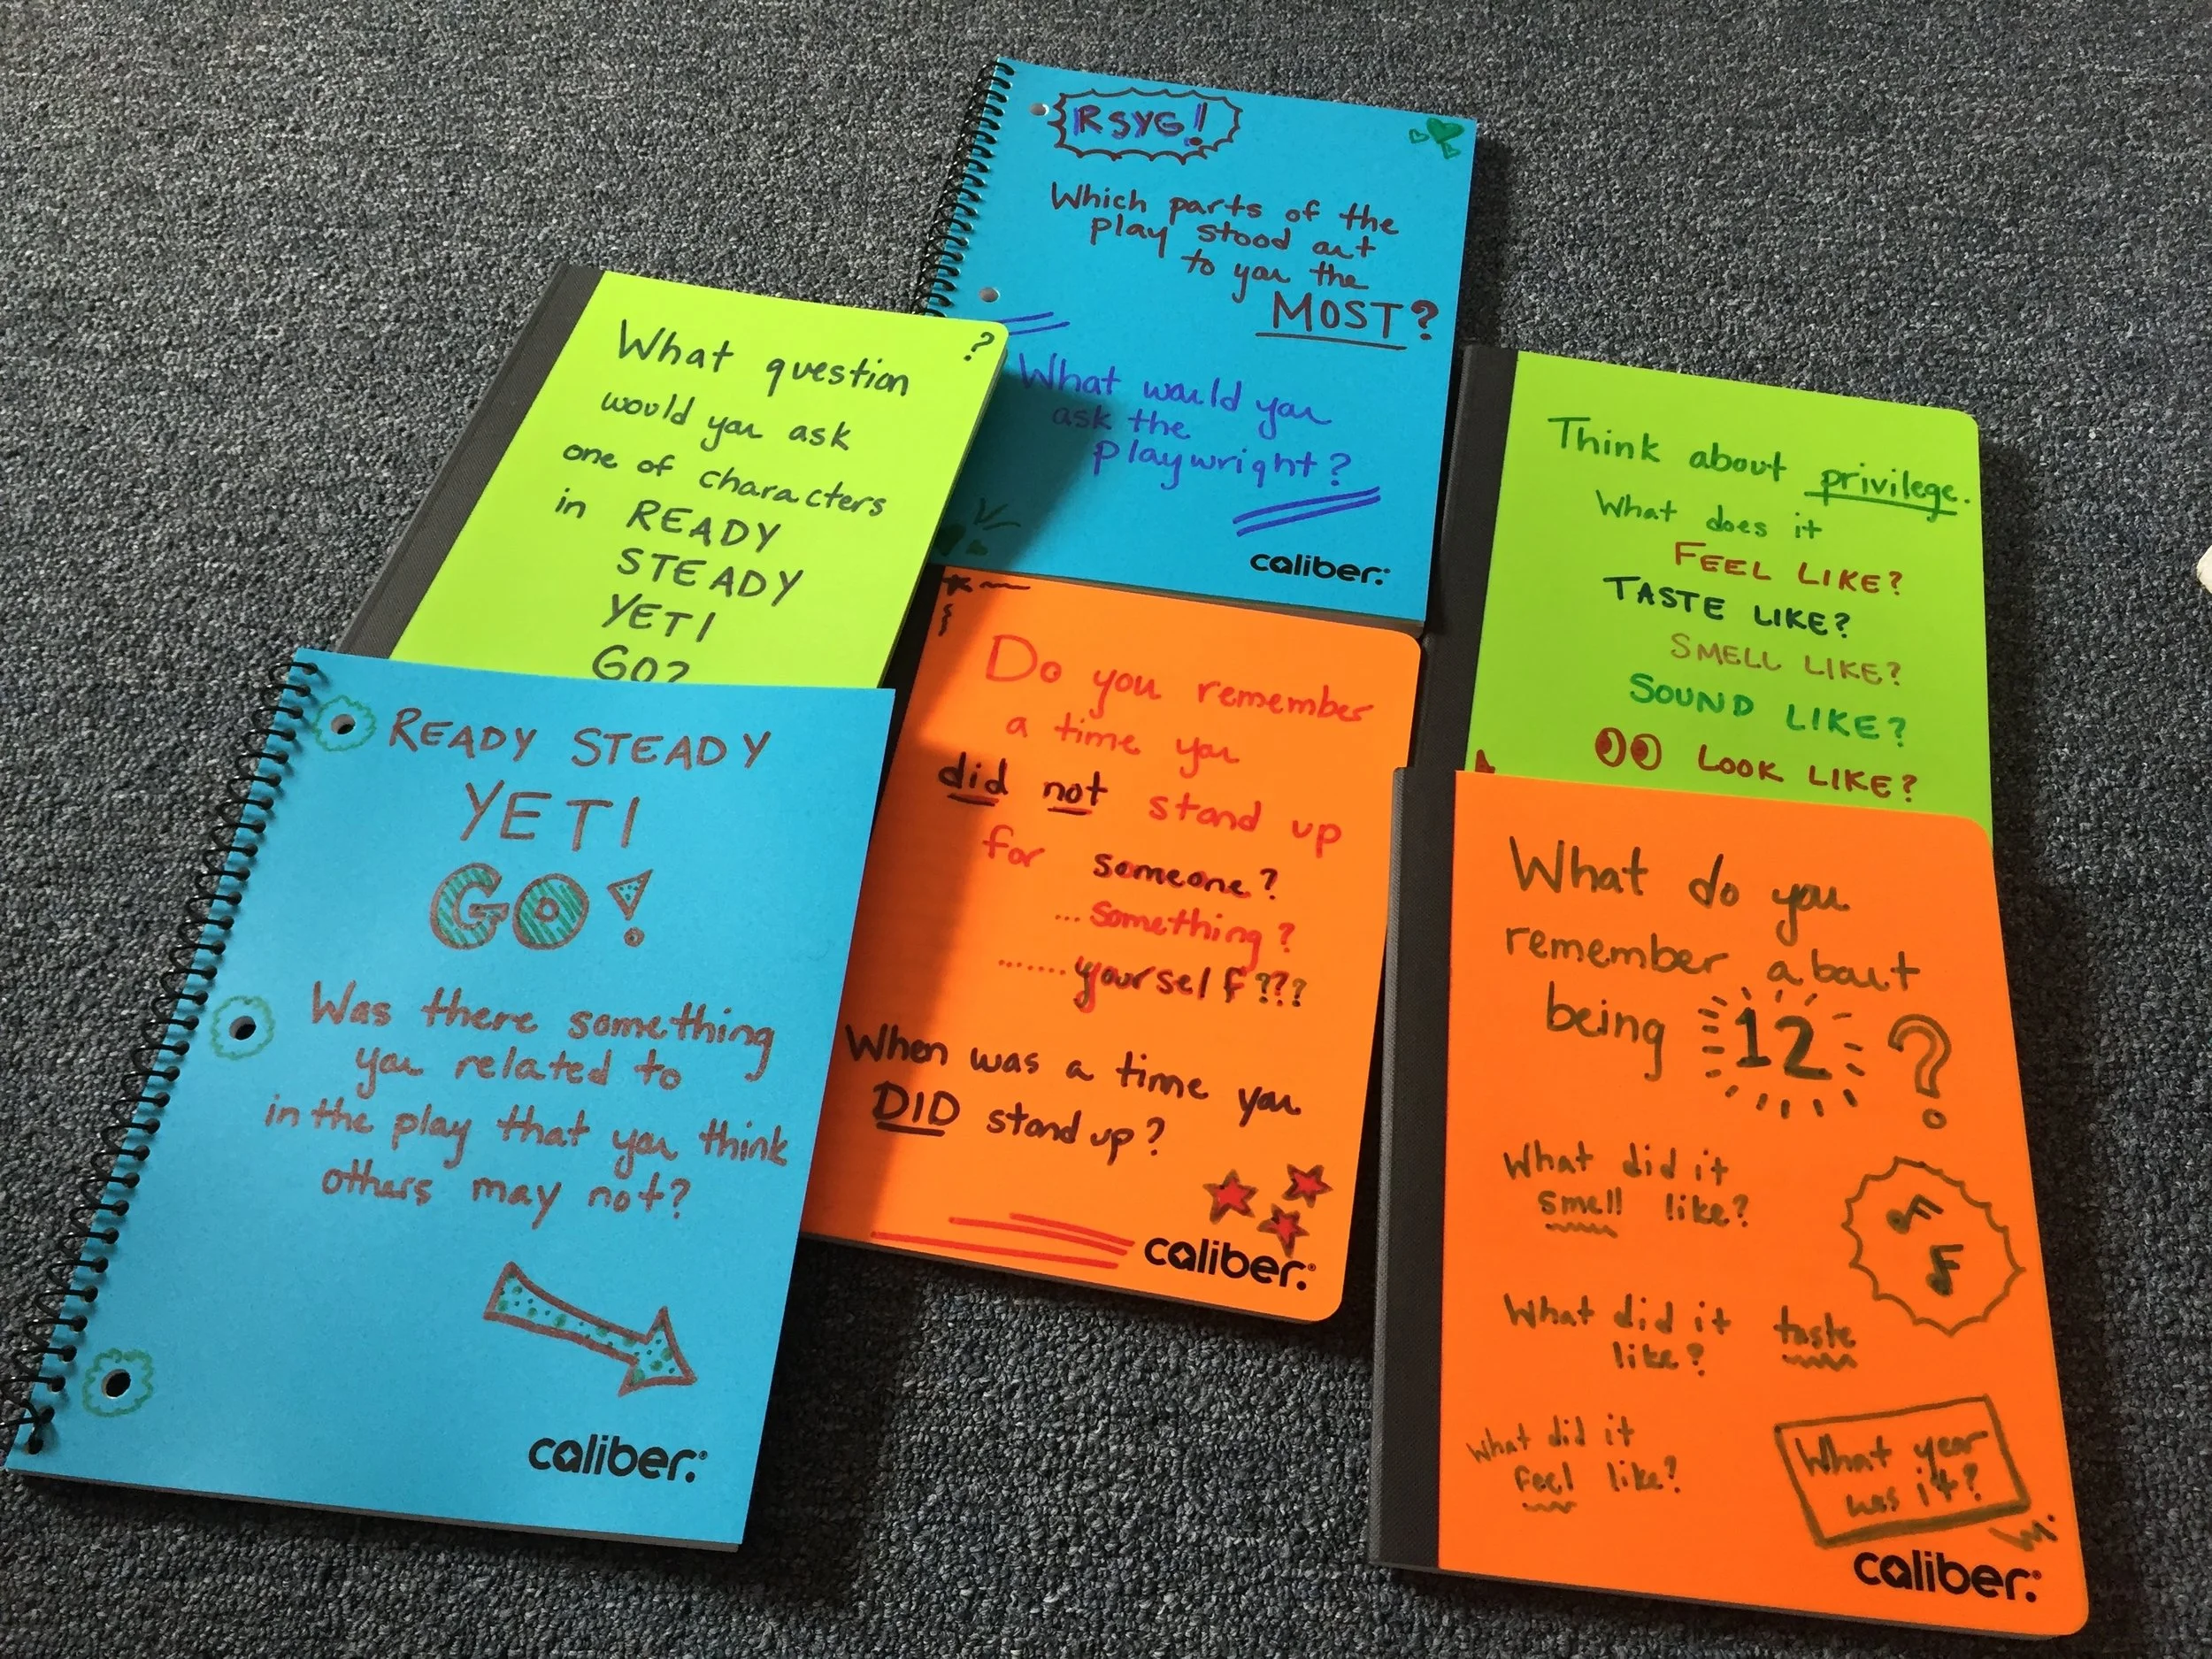 RSYG!
Which parts of the
play stood out
to you the
MOST?
What would you
ask the
playwright?
caliber.
?
What question
would you ask
one of characters
in READY
STEADY
YETI
GO?
Think about privilege.
What does it
FEEL LIKE?
TASTE LIKE?
SMELL LIKE?
SOUND LIKE?
LOOK LIKE?
READY STEADY
YETI
GO!
Was there something
you related to
in the play that you think
others may not?
caliber.
Do you remember
a time you
did not stand up
for someone?
... something?
....... yourself???
When was a time you
DID stand up?
caliber.
What do you
remember about
being 12?
What did it
smell like?
What did it taste
like?
What did it
feel like?
What year
was it?
caliber.